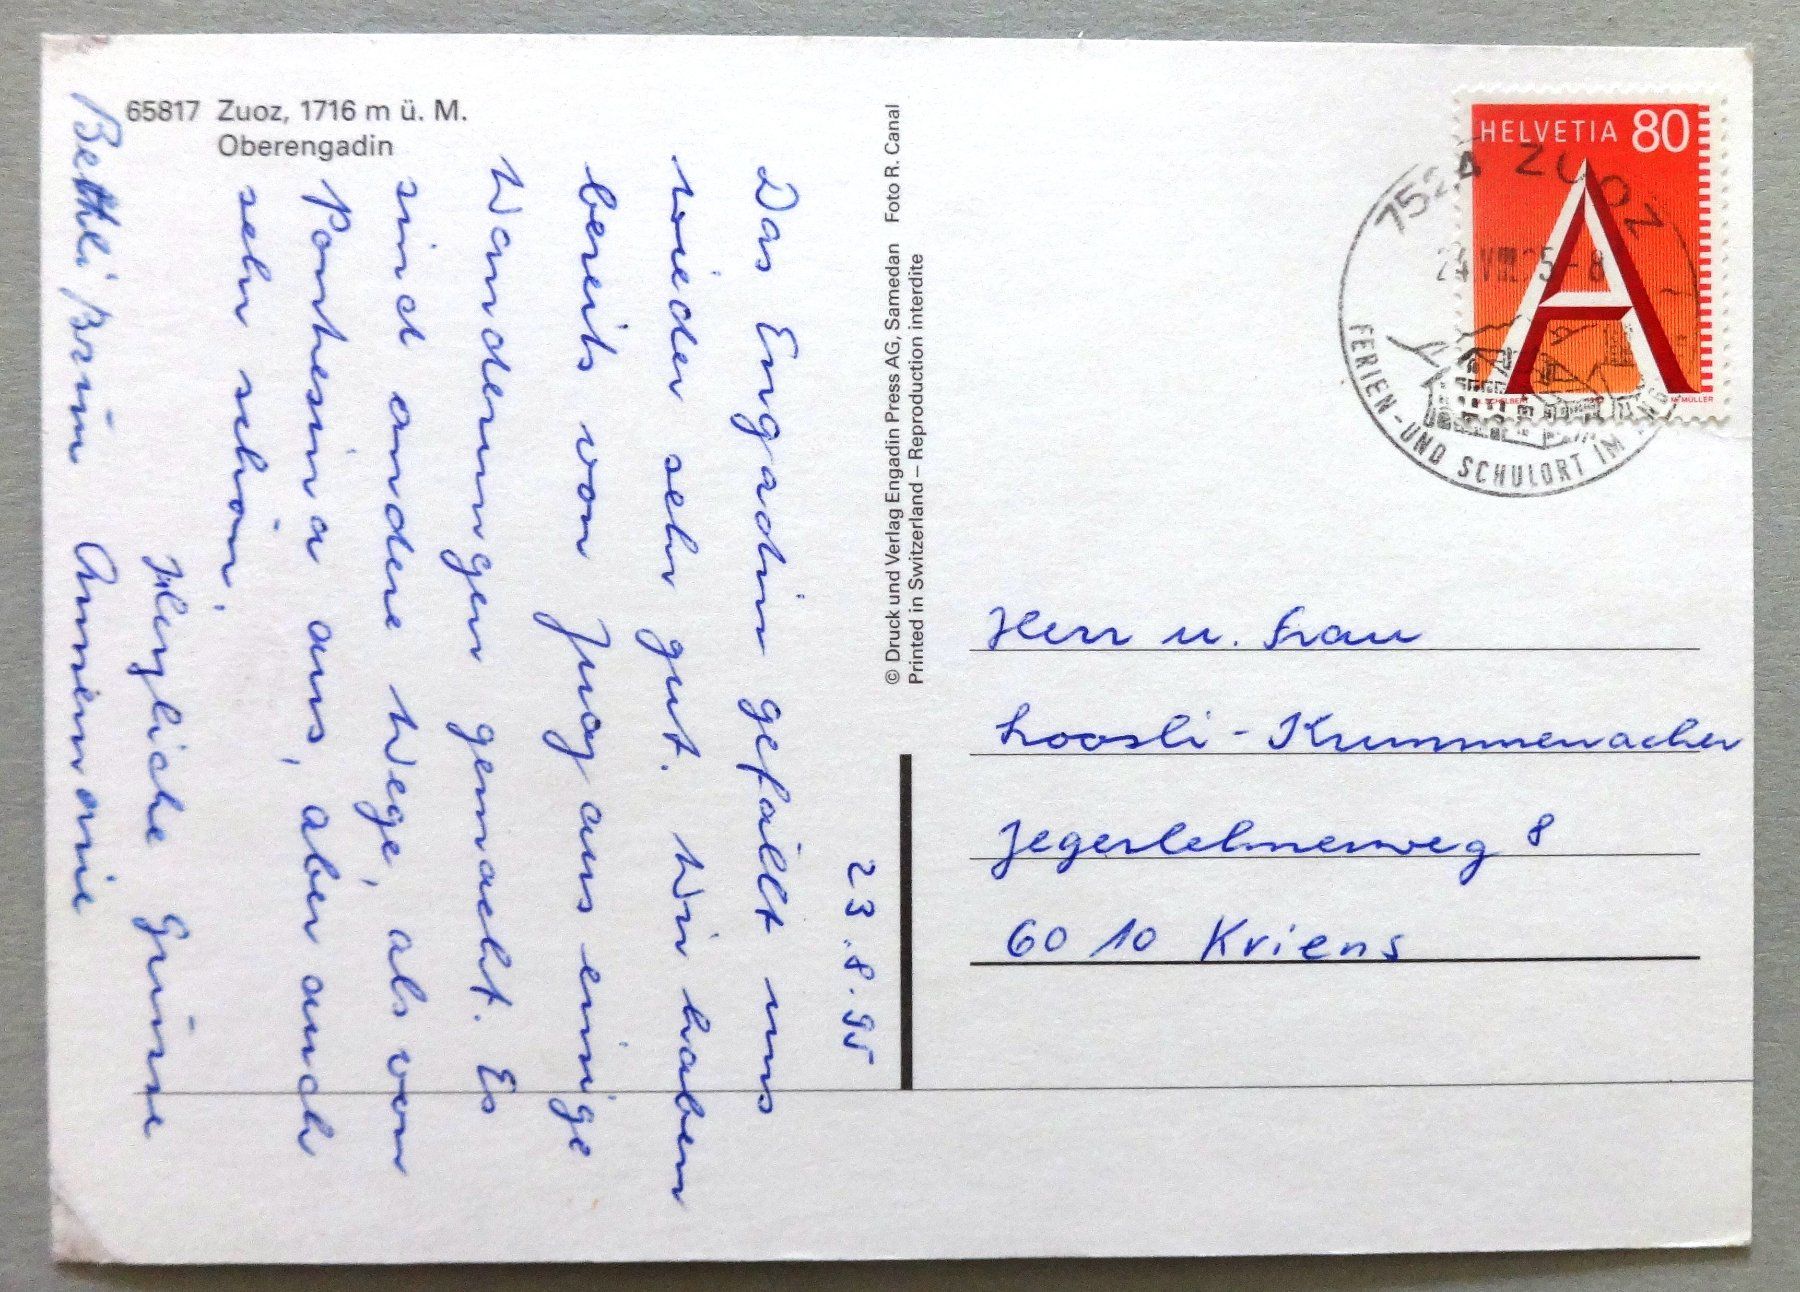 65817 Zuoz, 1716 m ü. M.
Oberengadin
23.8.95
Das Engadin gefällt uns
wieder sehr gut. Wir haben
bereits von Zuoz aus einige
Wanderungen gemacht. Es
sind andere Wege, als von
Pontresina aus, aber auch
sehr schön.
Herzliche Grüsse
Bethli Brun Annemarie
© Druck und Verlag Engadin Press AG, Samedan Foto R. Canal
Printed in Switzerland – Reproduction interdite
HELVETIA 80
M. MÜLLER
7524 ZUOZ
24.VIII.95-8
FERIEN-UND SCHULORT IM
Herr u. Frau
Loosli-Krummenacher
Jegerlehnerweg 8
6010 Kriens